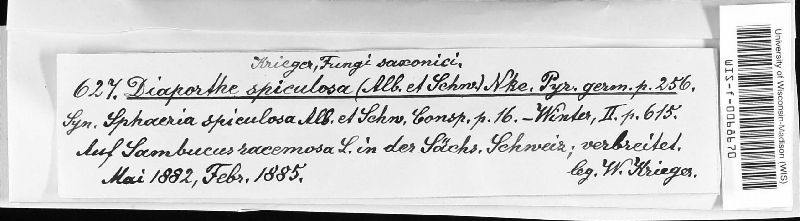 Krieger, Fungi saxonici.
627. Diaporthe spiculosa (Alb. et Schw.) Nke. Pyr. germ. p. 256.
Syn. Sphaeria spiculosa Alb. et Schw. Consp. p. 16. – Winter, II. p. 615.
Auf Sambucus racemosa L. in der Sächs. Schweiz; verbreitet.
Mai 1882, Febr. 1885.
leg. W. Krieger.
University of Wisconsin-Madison (WIS)
WIS-f-0068670